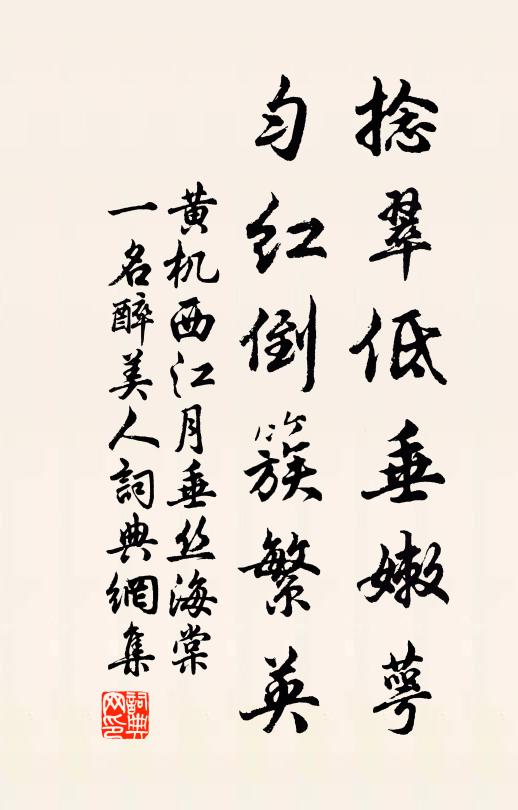 捻翠低垂嫩萼
匀红倒簇繁英
黄机西江月垂丝海棠
一名醉美人詞典網集
詞典网印